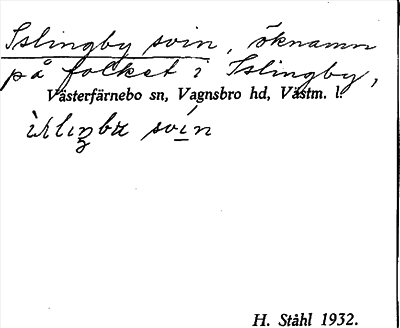 Islingby svin, öknamn
på folket i Islingby,
Västerfärnebo sn, Vagnsbro hd, Västm. l.
svin
H. Ståhl 1932.